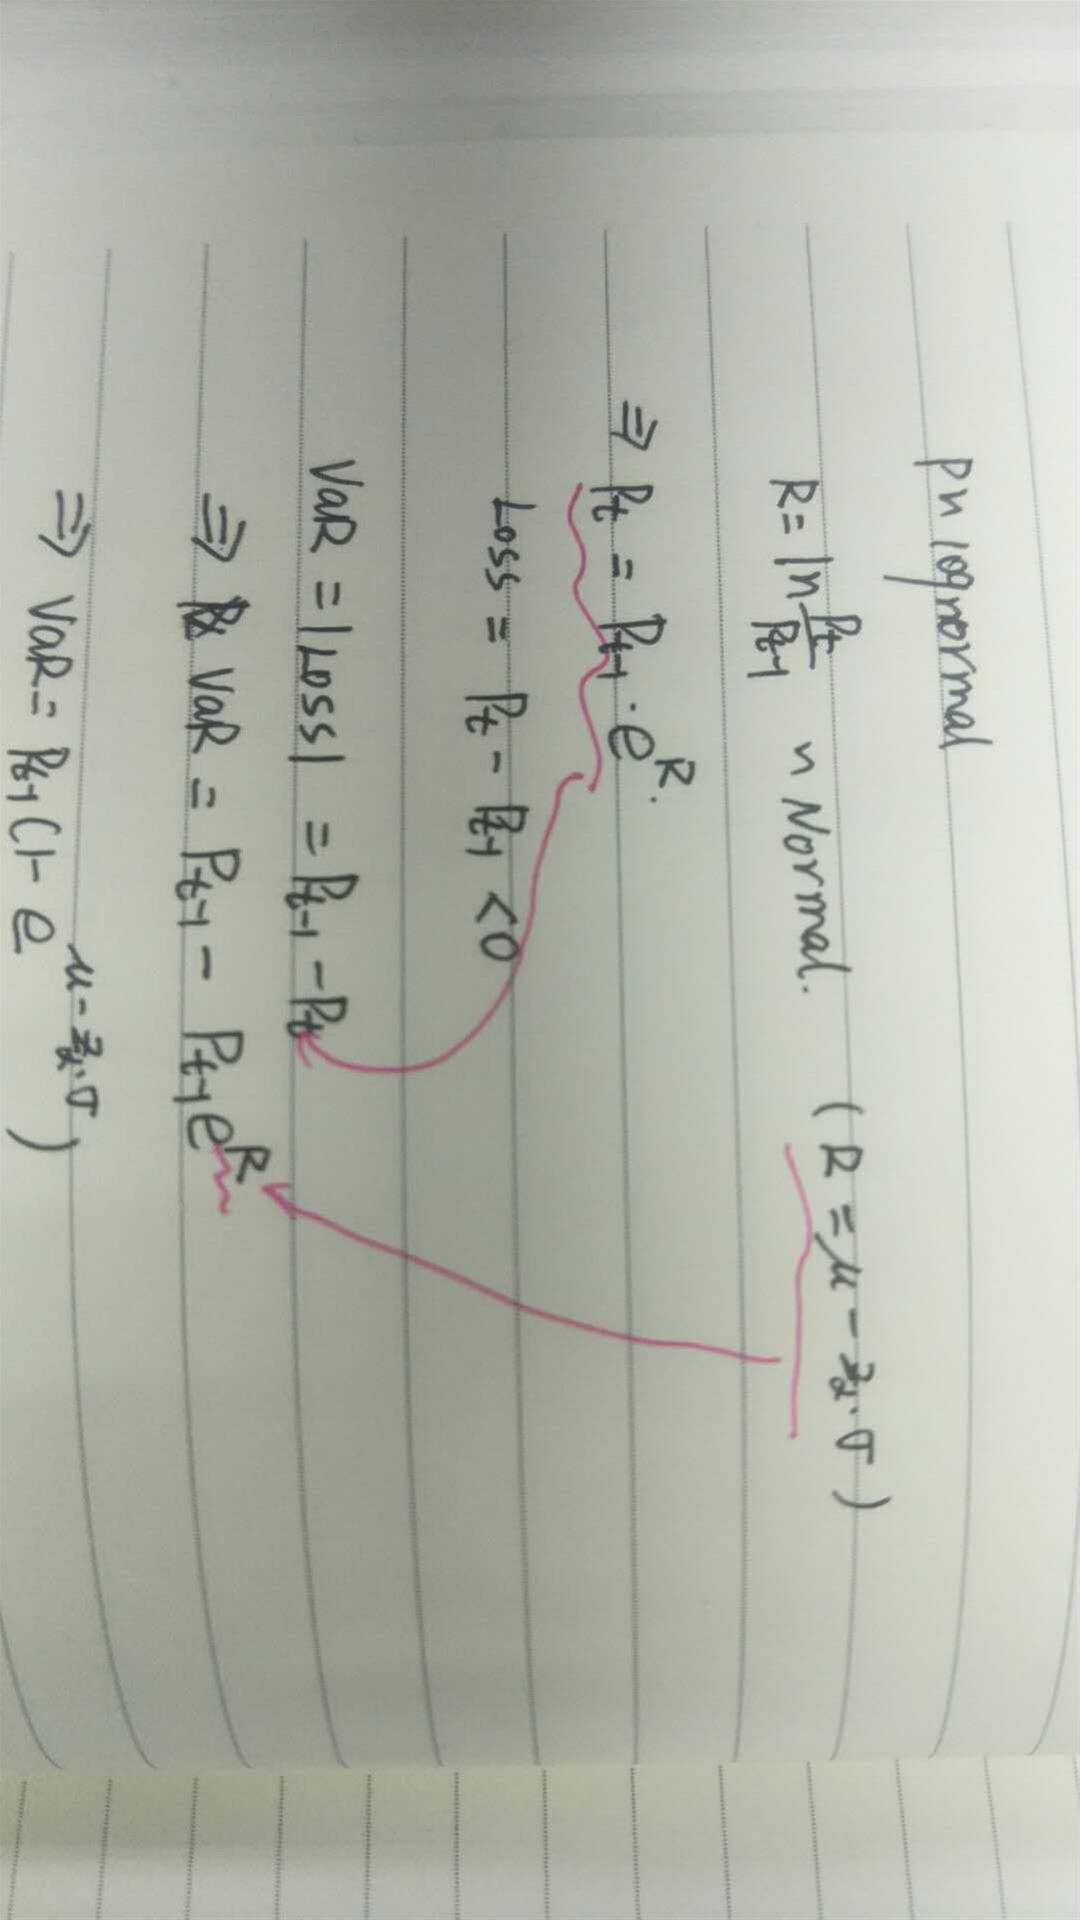 P ~ lognormal
R = ln Pt/Pt-1 ~ Normal. ( R = μ - zα·σ )
⇒ Pt = Pt-1 · e^R.
Loss = Pt - Pt-1 < 0
VaR = |Loss| = Pt-1 - Pt
⇒ VaR = Pt-1 - Pt-1 e^R
⇒ VaR = Pt-1 (1 - e^μ - zα·σ )